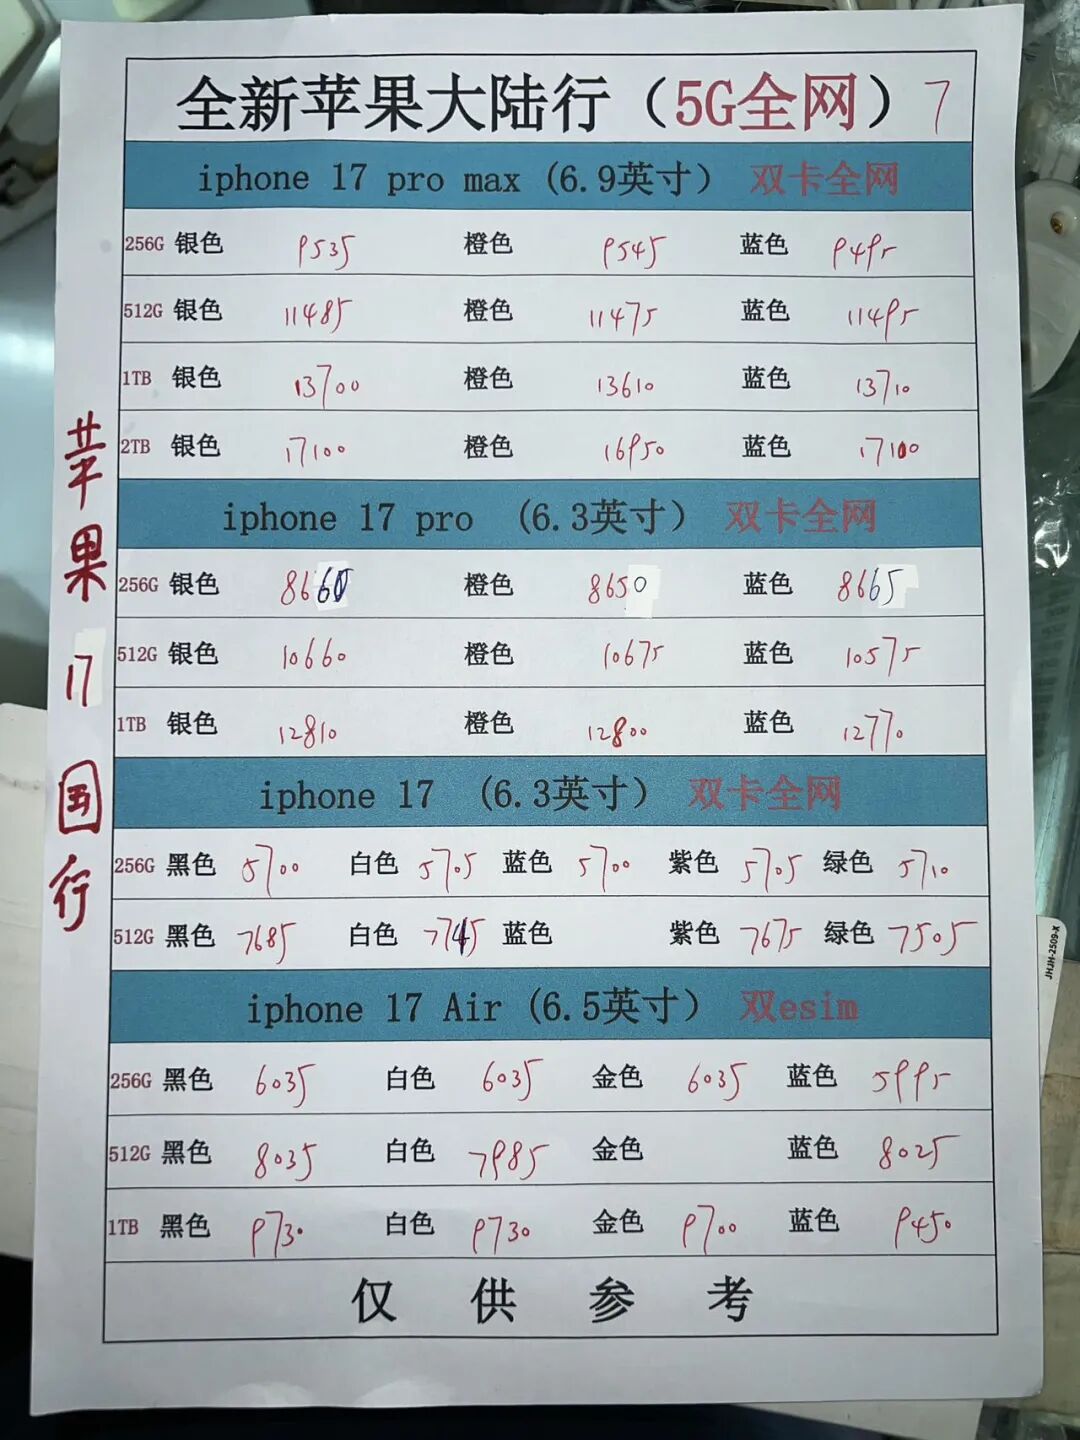 全新苹果大陆行（5G全网）7
iphone 17 pro max (6.9英寸） 双卡全网
256G 银色 9535 橙色 9545 蓝色 9495
512G 银色 11485 橙色 11475 蓝色 11495
1TB 银色 13700 橙色 13610 蓝色 13710
2TB 银色 17100 橙色 16950 蓝色 17100
iphone 17 pro (6.3英寸） 双卡全网
256G 银色 8660 橙色 8650 蓝色 8665
512G 银色 10660 橙色 10675 蓝色 10575
1TB 银色 12810 橙色 12800 蓝色 12770
iphone 17 (6.3英寸） 双卡全网
256G 黑色 5700 白色 5705 蓝色 5700 紫色 5705 绿色 5710
512G 黑色 7685 白色 7745 蓝色 紫色 7675 绿色 7505
iphone 17 Air (6.5英寸） 双esim
256G 黑色 6035 白色 6035 金色 6035 蓝色 5995
512G 黑色 8035 白色 7985 金色 蓝色 8025
1TB 黑色 9730 白色 9730 金色 9700 蓝色 9450
仅供参考
苹果17国行
JHJH-2509-X